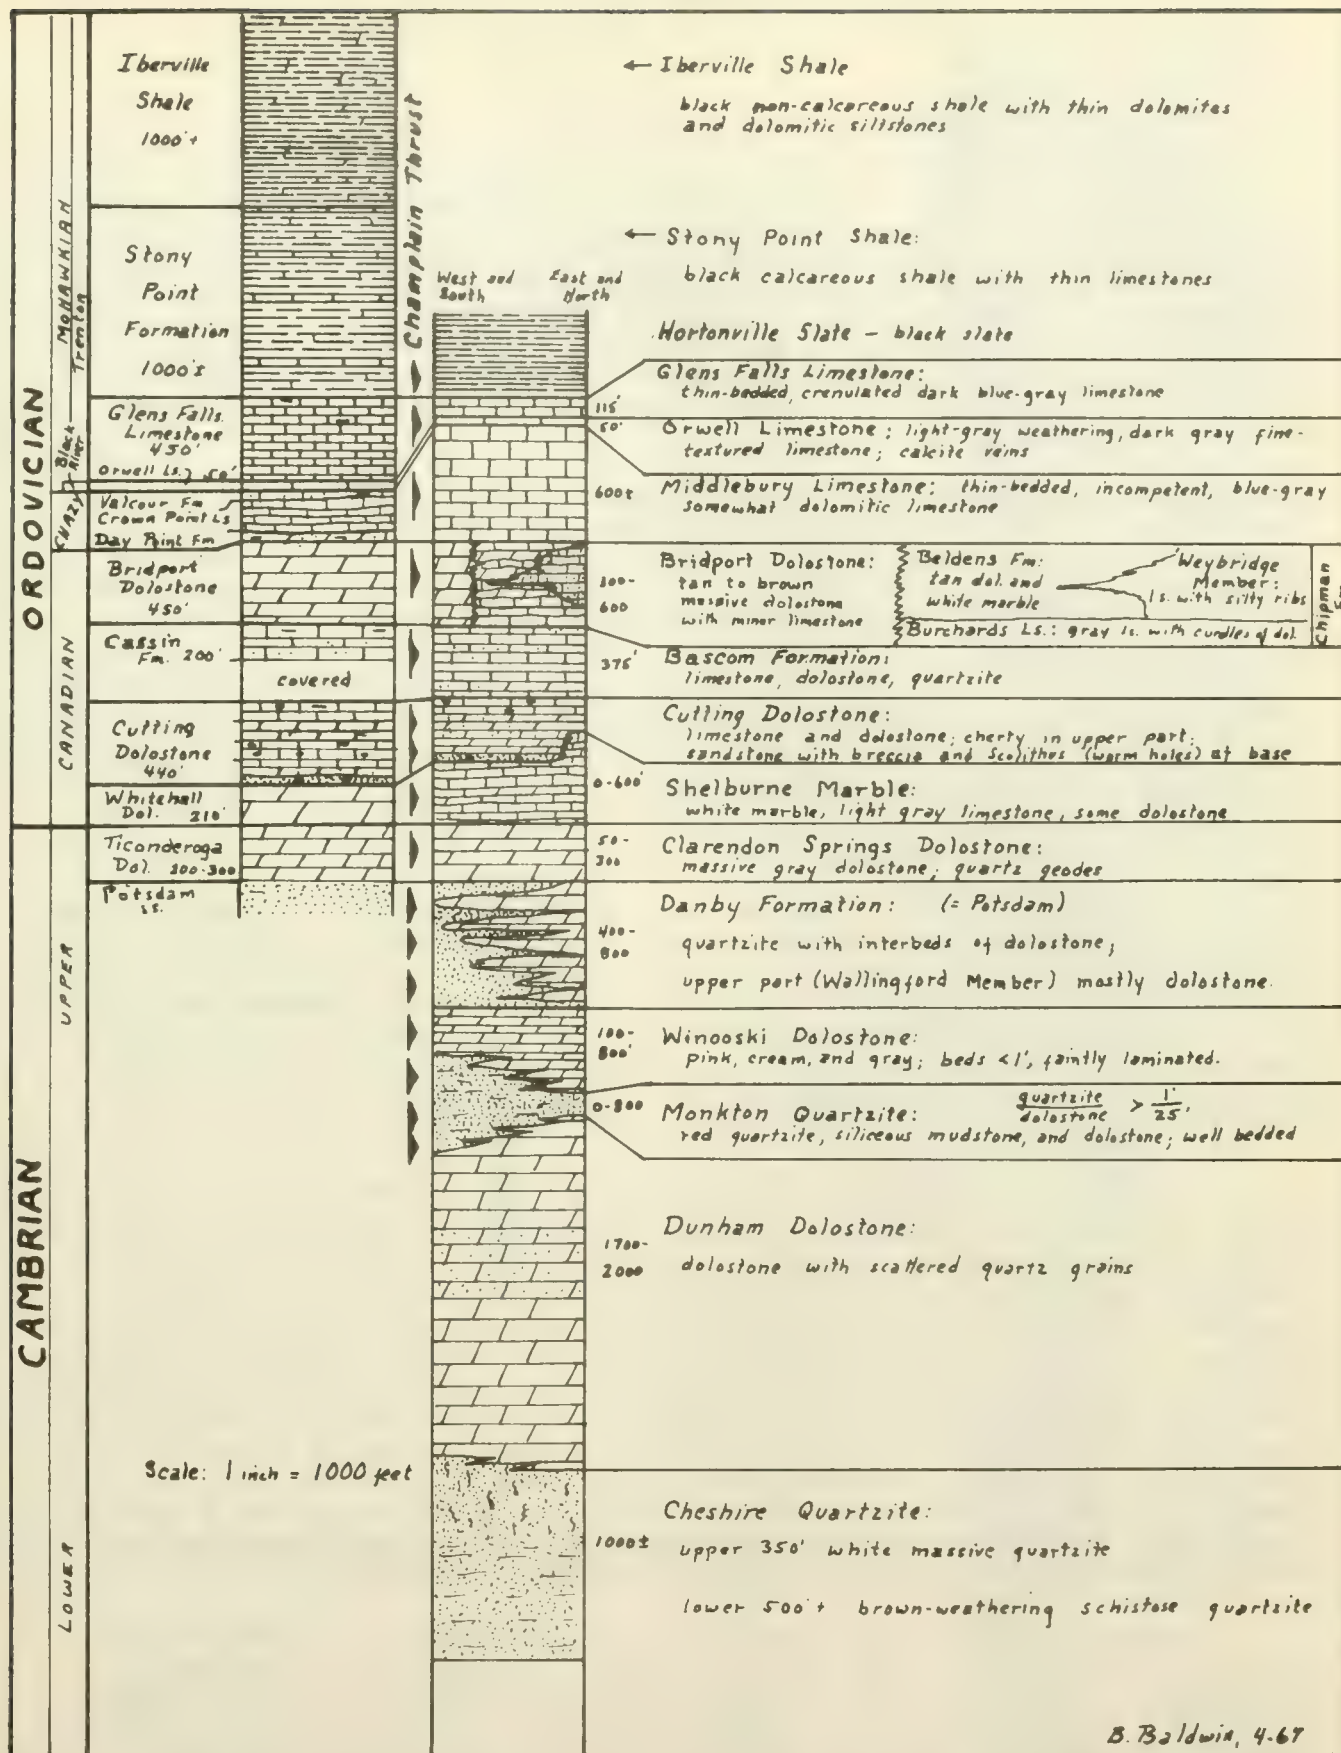 ORDOVICIAN
CAMBRIAN
MOHAWKIAN
Trenton
Black River
CHAZY
CANADIAN
UPPER
LOWER
Iberville
Shale
1000'+
Stony
Point
Formation
1000's
Glens Falls
Limestone
450'
Orwell Ls. } 50'
Valcour Fm
Crown Point Ls
Day Point Fm
Bridport
Dolostone
450'
Cassin
Fm. 200'
covered
Cutting
Dolostone
440'
Whitehall
Dol. 210'
Ticonderoga
Dol. 200-300
Potsdam
ss.
Champlain Thrust
West and
South
East and
North
← Iberville Shale
black non-calcareous shale with thin dolomites
and dolomitic siltstones
← Stony Point Shale:
black calcareous shale with thin limestones
Hortonville Slate - black slate
Glens Falls Limestone:
thin-bedded, crenulated dark blue-gray limestone
115'
50'
Orwell Limestone; light-gray weathering, dark gray fine-
textured limestone; calcite veins
600±
Middlebury Limestone; thin-bedded, incompetent, blue-gray
somewhat dolomitic limestone
600
Bridport Dolostone:
tan to brown
massive dolostone
with minor limestone
Beldens Fm:
tan dol. and
white marble
Weybridge
Member:
ls. with silty ribs
Burchards Ls.: gray ls. with curdles of dol.
Chipman
375'
Bascom Formation:
limestone, dolostone, quartzite
Cutting Dolostone:
limestone and dolostone; cherty in upper part;
sandstone with breccia and Scolithus (worm holes) at base
0-600'
Shelburne Marble:
white marble, light gray limestone, some dolostone
50-
300
Clarendon Springs Dolostone:
massive gray dolostone; quartz geodes
Danby Formation: (= Potsdam)
400-
800
quartzite with interbeds of dolostone;
upper part (Wallingford Member) mostly dolostone.
100-
800'
Winooski Dolostone:
pink, cream, and gray; beds <1', faintly laminated.
0-800
Monkton Quartzite: quartzite/dolostone > 1'/25'
red quartzite, siliceous mudstone, and dolostone; well bedded
1700-
2000
Dunham Dolostone:
dolostone with scattered quartz grains
Scale: 1 inch = 1000 feet
Cheshire Quartzite:
1000±
upper 350' white massive quartzite
lower 500'+ brown-weathering schistose quartzite
B. Baldwin, 4-67